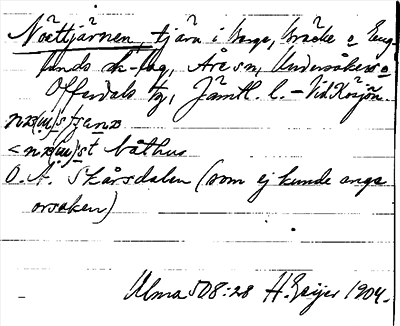 Nösttjärnen, tjärn i Berge, Bräcke o Eng-
lunds sk-lag, Åre sn, Undersåkers o
Offerdals tg, Jämtl. l. – Vid Korsjön
båthus
O. A. Skårsdalen (som ej kunde ange
orsaken)
Ulma 508:28 H. Geijer 1904.